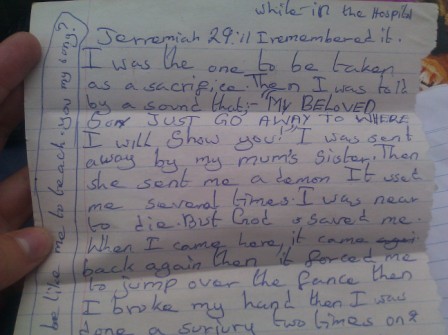 while in the Hospital
Jerremiah 29:11 I remembered it.
I was the one to be taken
as a sacrifice. Then I was told
by a sound that:- "MY BELOVED
SON JUST GO AWAY TO WHERE
I will show you!" I was sent
away by my mum's sister. Then
she sent me a demon It used
me several times. I was near
to die. But God saved me.
When I came here, it came
back again then it forced me
to jump over the fance then
I broke my hand then I was
done a surjury two times on
be like me to be ach. You my song?